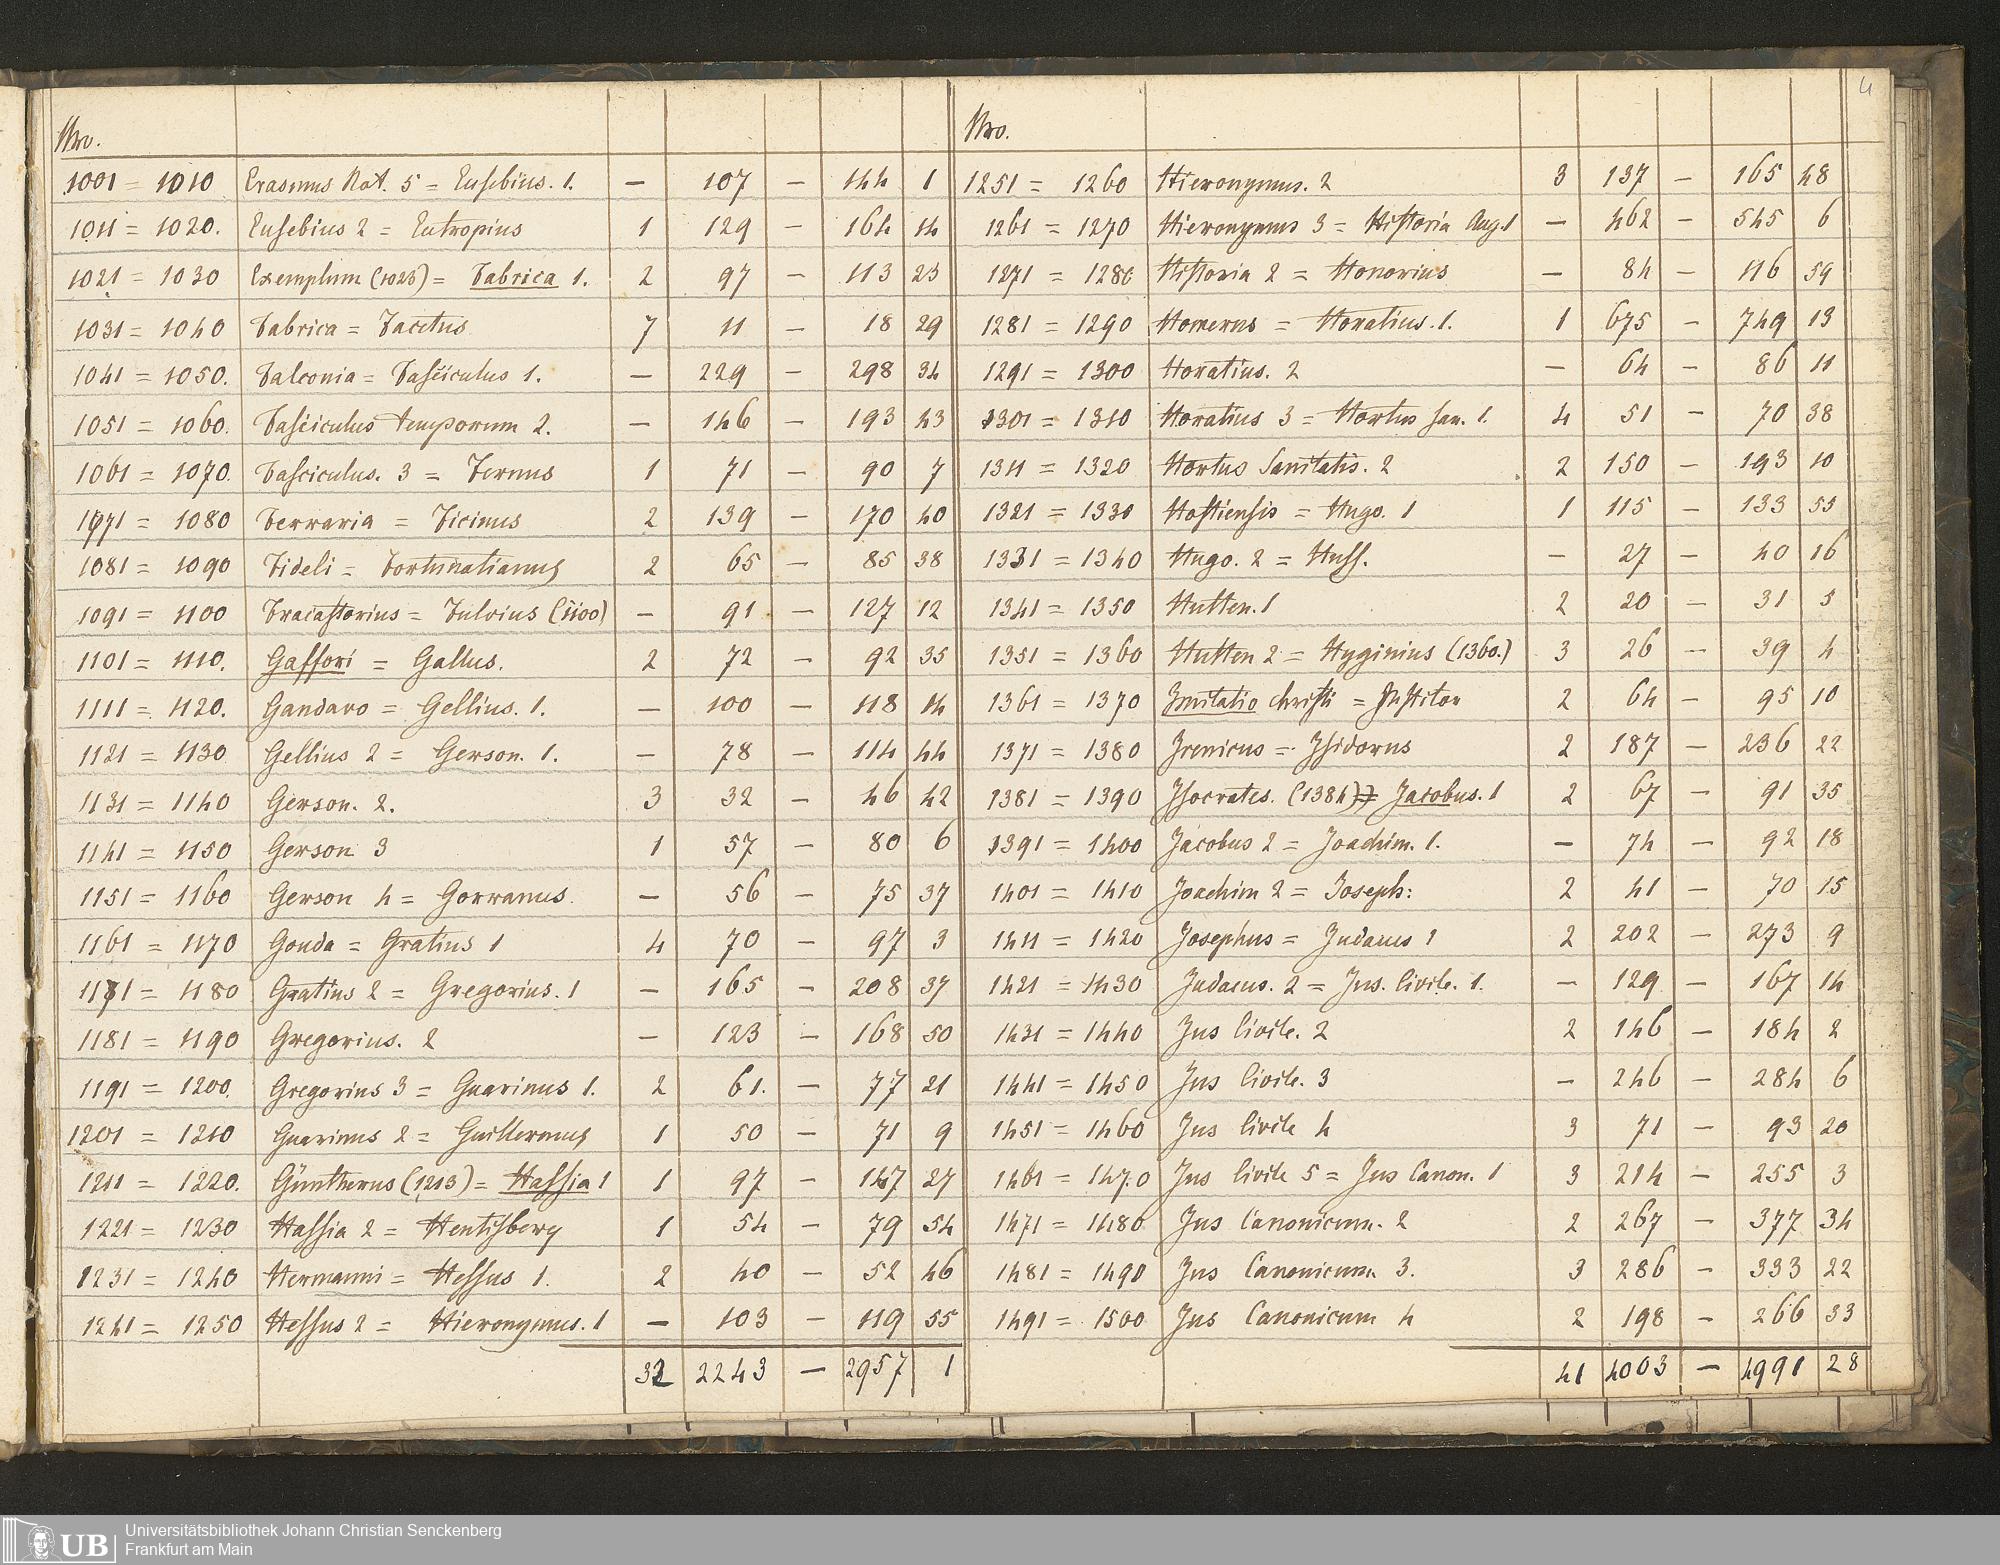 4
Nro.
1001 = 1010 Erasmus Rot. 5 = Eusebius. 1. — 107 — 144 1
1011 = 1020. Eusebius 2 = Eutropius 1 129 — 164 14
1021 = 1030 Exemplum (1023) = Fabrica 1. 2 97 — 113 23
1031 = 1040 Fabrica = Facetus 7 11 — 18 29
1041 = 1050. Falconia = Fasciculus 1. — 229 — 298 34
1051 = 1060. Fasciculus temporum 2. — 146 — 193 43
1061 = 1070. Fasciculus. 3 = Fernus 1 71 — 90 7
1071 = 1080 Ferraria = Ficinus 2 139 — 170 40
1081 = 1090 Fideli = Fortunatianus 2 65 — 85 38
1091 = 1100 Fracastorius = Fulvius (1100) — 91 — 127 12
1101 = 1110. Gaffori = Gallus. 2 72 — 92 35
1111 = 1120. Gandavo = Gellius. 1. — 100 — 118 14
1121 = 1130 Gellius 2 = Gerson. 1. — 78 — 114 44
1131 = 1140 Gerson. 2. 3 32 — 46 42
1141 = 1150 Gerson 3 1 57 — 80 6
1151 = 1160 Gerson 4 = Gorranus. — 56 — 75 37
1161 = 1170 Gouda = Gratius 1 4 70 — 97 3
1171 = 1180 Gratius 2 = Gregorius. 1 — 165 — 208 37
1181 = 1190 Gregorius. 2 — 123 — 168 50
1191 = 1200. Gregorius 3 = Guarinus 1. 2 61. — 77 21
1201 = 1210 Guarinus 2 = Guillermus 1 50 — 71 9
1211 = 1220. Güntherus (1213) = Hassia 1 1 97 — 147 27
1221 = 1230 Hassia 2 = Hentisberg 1 54 — 79 54
1231 = 1240 Hermanni = Hessus 1. 2 40 — 52 46
1241 = 1250 Hessus 2 = Hieronymus. 1 — 103 — 119 55
32 2243 — 2957 1
Nro.
1251 = 1260 Hieronymus. 2 3 137 — 165 48
1261 = 1270 Hieronymus 3 = Historia Aug. 1 — 462 — 545 6
1271 = 1280 Historia 2 = Honorius — 84 — 116 59
1281 = 1290 Homerus = Horatius. 1. 1 675 — 749 13
1291 = 1300 Horatius. 2 — 64 — 86 11
1301 = 1310 Horatius 3 = Hortus san. 1. 4 51 — 70 38
1311 = 1320 Hortus Sanitatis. 2 2 150 — 193 10
1321 = 1330 Hostiensis = Hugo. 1 1 115 — 133 55
1331 = 1340 Hugo. 2 = Huss. — 27 — 40 16
1341 = 1350 Hutten. 1 2 20 — 31 5
1351 = 1360 Hutten 2 = Hyginius (1360.) 3 26 — 39 4
1361 = 1370 Imitatio christi = Institor 2 64 — 95 10
1371 = 1380 Irenicus = Isidorus 2 187 — 236 22
1381 = 1390 Isocrates. (1384) = Jacobus. 1 2 67 — 91 35
1391 = 1400 Jacobus 2 = Joachim. 1. — 74 — 92 18
1401 = 1410 Joachim 2 = Joseph: 2 41 — 70 15
1411 = 1420 Josephus = Judaeus 1 2 202 — 273 9
1421 = 1430 Judaeus. 2 = Jus. Civile. 1. — 129 — 167 14
1431 = 1440 Jus Civile. 2 2 146 — 184 2
1441 = 1450 Jus Civile. 3 — 246 — 284 6
1451 = 1460 Jus Civile 4 3 71 — 93 20
1461 = 1470 Jus Civile 5 = Jus Canon. 1 3 214 — 255 3
1471 = 1480 Jus Canonicum. 2 2 267 — 377 34
1481 = 1490 Jus Canonicum 3. 3 286 — 333 22
1491 = 1500 Jus Canonicum 4 2 198 — 266 33
41 4003 — 4991 28
UB Universitätsbibliothek Johann Christian Senckenberg
Frankfurt am Main